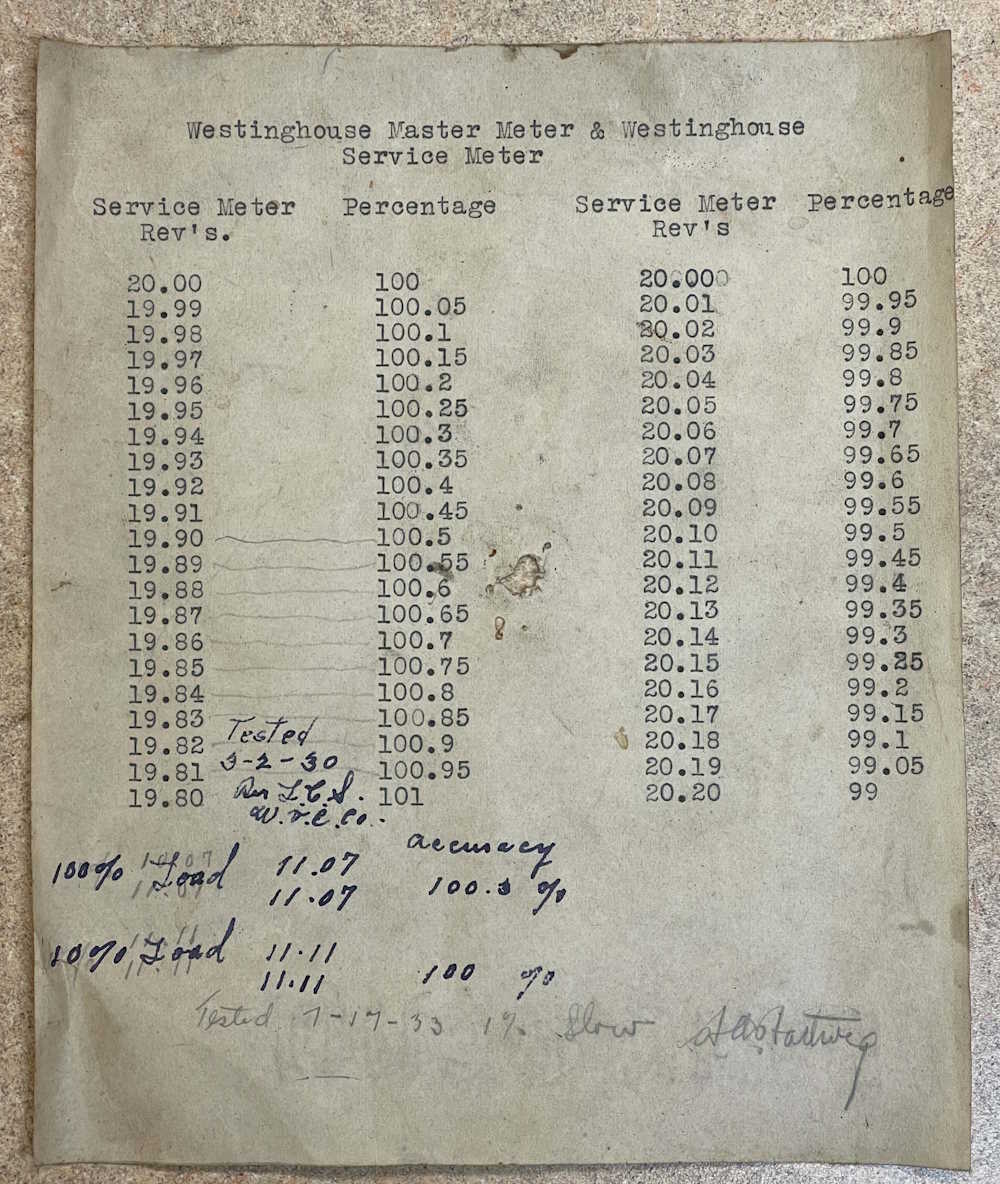 Westinghouse Master Meter & Westinghouse
Service Meter
Service Meter Percentage Service Meter Percentage
Rev's. Rev's
20.00 100 20.000 100
19.99 100.05 20.01 99.95
19.98 100.1 20.02 99.9
19.97 100.15 20.03 99.85
19.96 100.2 20.04 99.8
19.95 100.25 20.05 99.75
19.94 100.3 20.06 99.7
19.93 100.35 20.07 99.65
19.92 100.4 20.08 99.6
19.91 100.45 20.09 99.55
19.90 100.5 20.10 99.5
19.89 100.55 20.11 99.45
19.88 100.6 20.12 99.4
19.87 100.65 20.13 99.35
19.86 100.7 20.14 99.3
19.85 100.75 20.15 99.25
19.84 100.8 20.16 99.2
19.83 100.85 20.17 99.15
19.82 100.9 20.18 99.1
19.81 100.95 20.19 99.05
19.80 101 20.20 99
Tested
3-2-30
L.C.S.
Accuracy
100% Load 11.07
11.07 100.3 %
10% Load 11.11
11.11 100 %
Tested 7-17-33 1% Slow